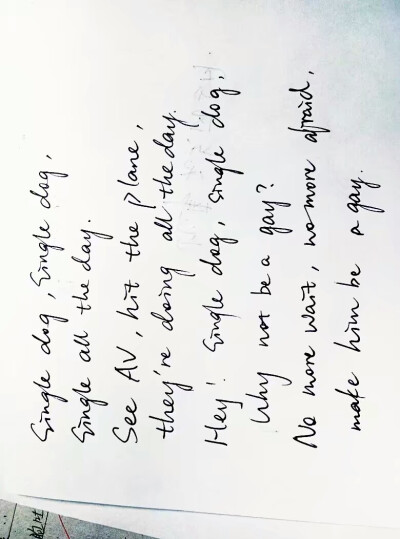 Single dog, single dog,
Single all the day.
See AV, hit the plane,
they're doing all the day.
Hey! Single dog, single dog,
Why not be a gay?
No more wait, no more afraid,
make him be a gay.
的吐